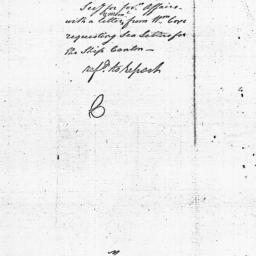 Secy for forn. Affairs
with a letter from Wm
requesting Sea Letters for
the Ship Canton—
refd. to report